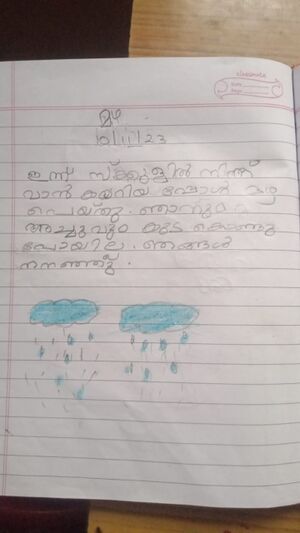 classmate
Date
Page
മഴ
10/11/23
ഇന്ന് സ്ക്കൂളിൽ നിന്ന്
വാൻ കയറിയ പ്പോൾ മഴ
പെയ്തു. ഞാനും
അച്ചുവും കുട കൊണ്ടു
പോയില്ല. ഞങ്ങൾ
നനഞ്ഞു.